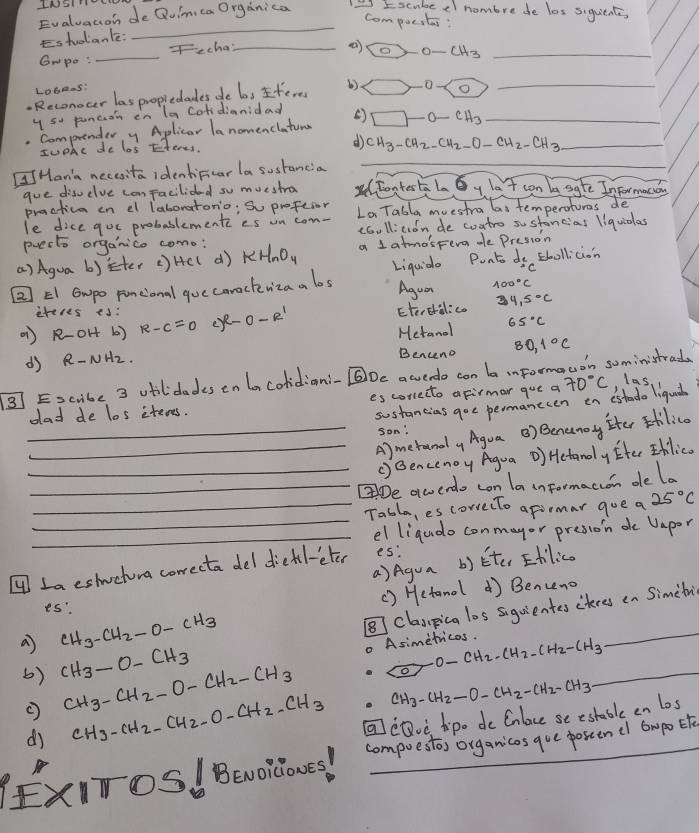 Evaluación de Química Orgánica
Estudiante:
Grupo: Fecha:
Logros:
• Reconocer las propiedades de los Éteres
y su función en la Cotidianidad
• Comprender y Aplicar la nomenclatura
IUPAC de los Éteres.
1 María necesita identificar la sustancia
que disuelve con facilidad su muestra
practica en el laboratorio; Su profesor
le dice que probablemente es un com-
puesto orgánico como:
a) Agua b) Éter c) HCl d) KMnO4
2 El Grupo funcional que caracteriza a los
éteres es:
a) R-OH b) R-C=O c) R-O-R'
d) R-NH2.
3 Escribe 3 utilidades en la cotidiani-
dad de los éteres.
4 La estructura correcta del dietil-éter
es:
a) CH3-CH2-O-CH3
b) CH3-O-CH3
c) CH3-CH2-O-CH2-CH3
d) CH3-CH2-CH2-O-CH2-CH3
¡ÉXITOS! BENDICIONES!
Escribe el nombre de los siguientes
compuestos:
a) O-CH3
b) O
c) O-CH3
d) CH3-CH2-CH2-O-CH2-CH3
Contesta La 6 y la 7 con la sgte Información
La Tabla muestra las temperaturas de
ebullición de cuatro sustancias líquidas
a 1 atmósfera de Presión
Líquido Punto de Ebullición
°C
Agua 100°C
Eter etílico 34,5°C
Metanol 65°C
Benceno 80,1°C
6 De acuerdo con la información suministrada
es correcto afirmar que a 70°C, las
sustancias que permanecen en estado líquido
son:
A) metanol y Agua B) Benceno y Éter Etílico
C) Benceno y Agua D) Metanol y Éter Etílico
7 De acuerdo con la información de la
Tabla, es correcto afirmar que a 25°C
el líquido con mayor presión de Vapor
es:
a) Agua b) Éter Etílico
c) Metanol d) Benceno
8 Clasifica los siguientes éteres en Simétri
o Asimétricos.
• O-CH2-CH2-CH2-CH3
• CH3-CH2-O-CH2-CH2-CH3
9 ¿Qué tipo de Enlace se establece en los
compuestos orgánicos que poseen el Grupo Éte